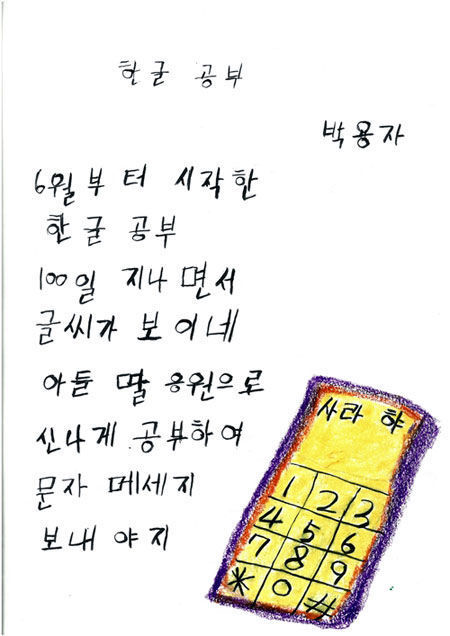 한글 공부
박용자
6월부터 시작한
한글 공부
100일 지나면서
글씨가 보이네
아들 딸 응원으로
신나게 공부하여
문자 메세지
보내야지
사라햐
1 2 3
4 5 6
7 8 9
* 0 #